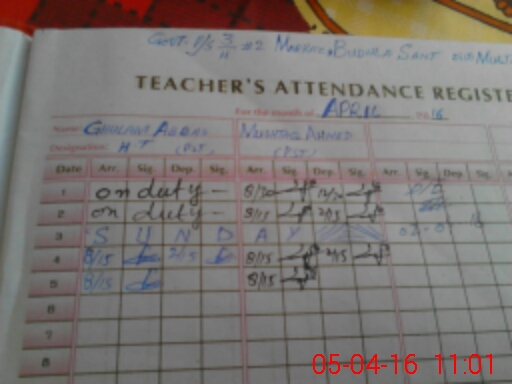 GOVT. P/S 3/11 #2 Markaz Budhla Sant OLD Mult
TEACHER'S ATTENDANCE REGISTE
For the month of APRIL 2016
Name GHULAM ABBAS MUSHTAQ AHMED
Designation HT (PST) (PST)
Date Arr. Sig. Dep. Sig. Arr. Sig. Dep. Sig. Arr. Sig. Dep.
1 on duty - 8/30 12/30
2 on duty - 8/15 2/15
3 S U N D A Y
4 8/15 2/15 8/15 2/15
5 8/15 8/15
6
7
8
05-04-16 11:01